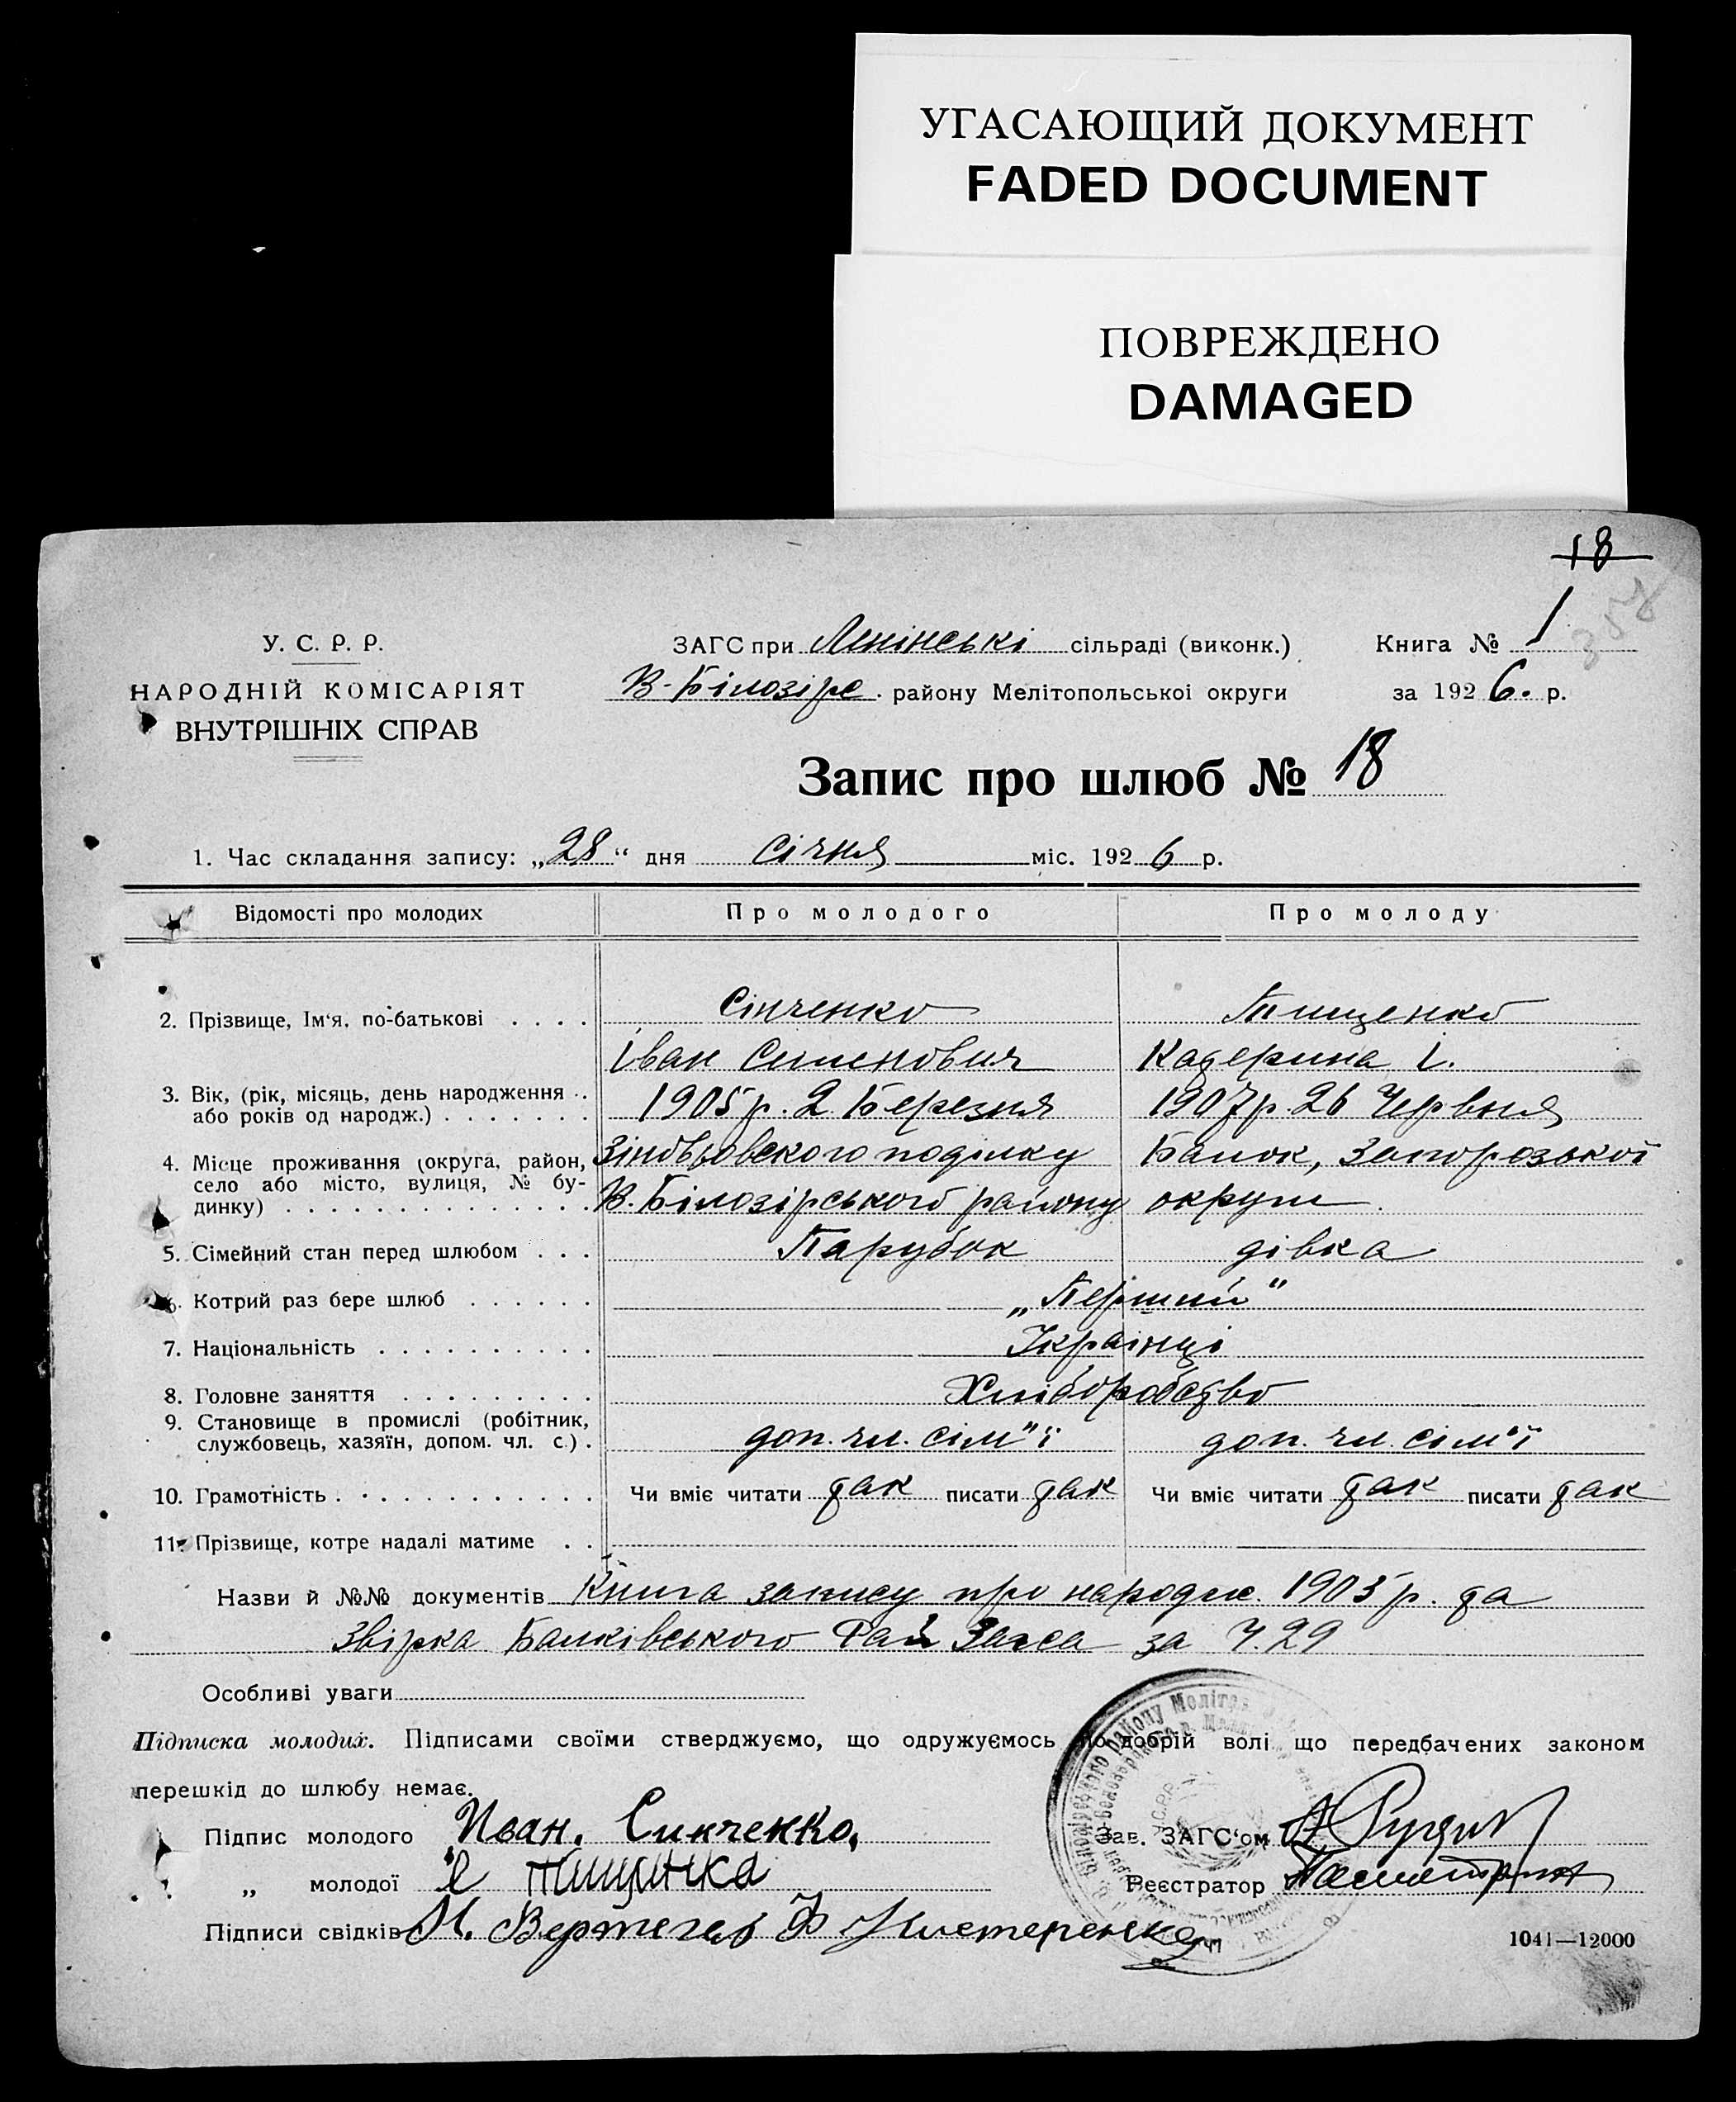 УГАСАЮЩИЙ ДОКУМЕНТ
FADED DOCUMENT
ПОВРЕЖДЕНО
DAMAGED
18
358
У. С. Р. Р.
НАРОДНІЙ КОМІСАРІЯТ
ВНУТРІШНІХ СПРАВ
ЗАГС при Ленінські сільраді (виконк.)
Книга № 1
В-Білозірс. району Мелітопольскоі округи
за 1926. р.
Запис про шлюб № 18
1. Час складання запису: „28“ дня січня міс. 1926 р.
Відомості про молодих Про молодого Про молоду
2. Прізвище, Ім‘я, по-батькові . . . . Сінченко Тищенко
Іван Семенович Катерина І.
3. Вік, (рік, місяць, день народження . . 1905 р. 2 Березня 1907 р 26 Червня
або років од народж.) . . . . . . .
4. Місце проживання (округа, район, Зіновьовского поділку Балок, Запорозької
село або місто, вулиця, № бу-
динку) . . . . . . . . . . . . . . В. Білозірського району округи.
5. Сімейний стан перед шлюбом . . . Парубок дівка
6. Котрий раз бере шлюб . . . . . . „Перший“
7. Національність . . . . . . . . . . Українці
8. Головне заняття . . . . . . . . . Хліборобство
9. Становище в промислі (робітник,
службовець, хазяїн, допом. чл. с.) . доп. чл. сім"ї доп. чл. сім"ї
10. Грамотність . . . . . . . . . . . . Чи вміє читати так писати так Чи вміє читати так писати так
11. Прізвище, котре надалі матиме . .
Назви й №№ документів Книга запису про народж. 1905 р. та
Звірка Балківського Рай Загса за Ч. 29
Особливі уваги
Підписка молодих. Підписами своїми стверджуємо, що одружуємось по добрій волі що передбачених законом
перешкід до шлюбу немає.
Підпис молодого Иван. Синченко.
Зав. ЗАГС‘ом
„ молодої тищинка
Реєстратор
Підписи свідків М. Нистеренко
1041—12000